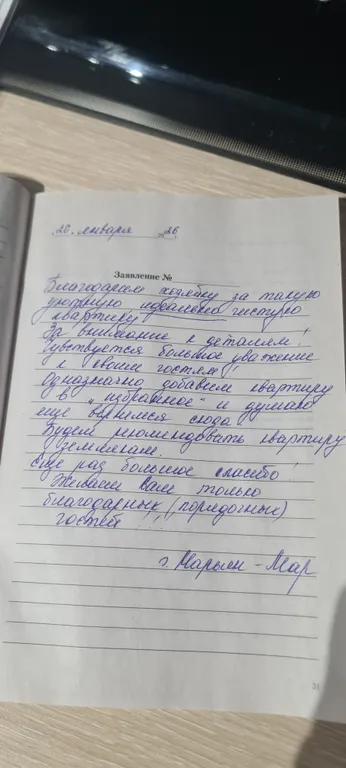 20. января 20 26
Заявление №
Благодарим хозяйку за такую
уютную идеально чистую
квартиру
За внимание к деталям!
Чувствуется большое уважение
к своим гостям!
Однозначно добавим квартиру
в "избранное" и думаю
ещё вернемся сюда
Будем рекомендовать квартиру
землякам.
Ещё раз большое спасибо!
Желаем Вам только
благодарных (порядочных)
гостей!!!
г. Нарьян-Мар
31